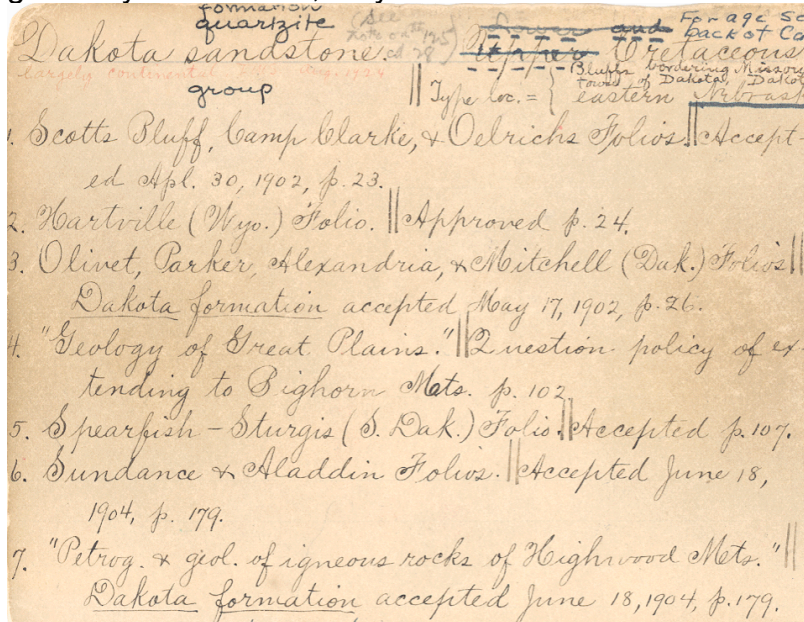 formation
quartzite
(See
note on
Dakota sandstone Lower and Upper Cretaceous
For age
back of
largely continental
group
Type loc. = { Bluffs bordering
of Dakota,
eastern
1. Scotts Bluff, Camp Clarke, & Oelrichs Folios. || Accept-
ed Apl. 30, 1902, p. 23.
2. Hartville (Wyo.) Folio. || Approved p. 24.
3. Olivet, Parker, Alexandria, & Mitchell (Dak.) Folios ||
Dakota formation accepted May 17, 1902, p. 26.
4. "Geology of Great Plains." || Question policy of ex-
tending to Bighorn Mts. p. 102.
5. Spearfish - Sturgis (S. Dak.) Folio. || Accepted p. 107.
6. Sundance & Aladdin Folios. || Accepted June 18,
1904, p. 179.
7. "Petrog. & geol. of igneous rocks of Highwood Mts." ||
Dakota formation accepted June 18, 1904, p. 179.